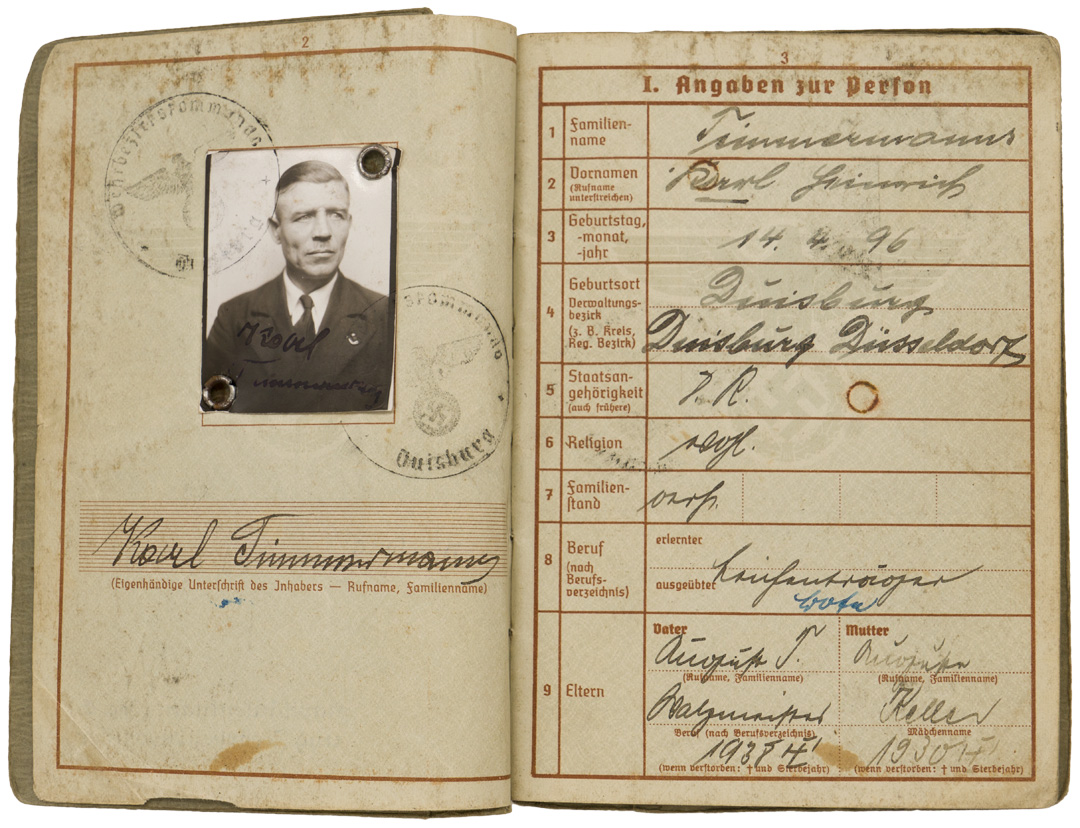 2
Wehrbezirkskommando
Duisburg
Karl
Timmermanns
Karl Timmermanns
(Eigenhändige Unterschrift des Inhabers — Rufname, Familienname)
3
I. Angaben zur Person
1 Familien-
name
Timmermanns
2 Vornamen
(Rufname
unterstreichen)
Karl Heinrich
3 Geburtstag,
-monat,
-jahr
14. 4. 96
4 Geburtsort
Verwaltungs-
bezirk
(z. B. Kreis,
Reg. Bezirk)
Duisburg
Duisburg Düsseldorf
5 Staatsan-
gehörigkeit
(auch frühere)
D. R.
6 Religion
evgl.
7 Familien-
stand
verh.
8 Beruf
(nach
Berufs-
verzeichnis)
erlernter
ausgeübter
Leichenträger
Bote
9 Eltern
Vater
August T.
(Rufname, Familienname)
Walzmeister
Beruf (nach Berufsverzeichnis)
(wenn verstorben: † und Sterbejahr)
Mutter
Auguste
(Rufname, Familienname)
Keller
Mädchenname
1930 †
(wenn verstorben: † und Sterbejahr)